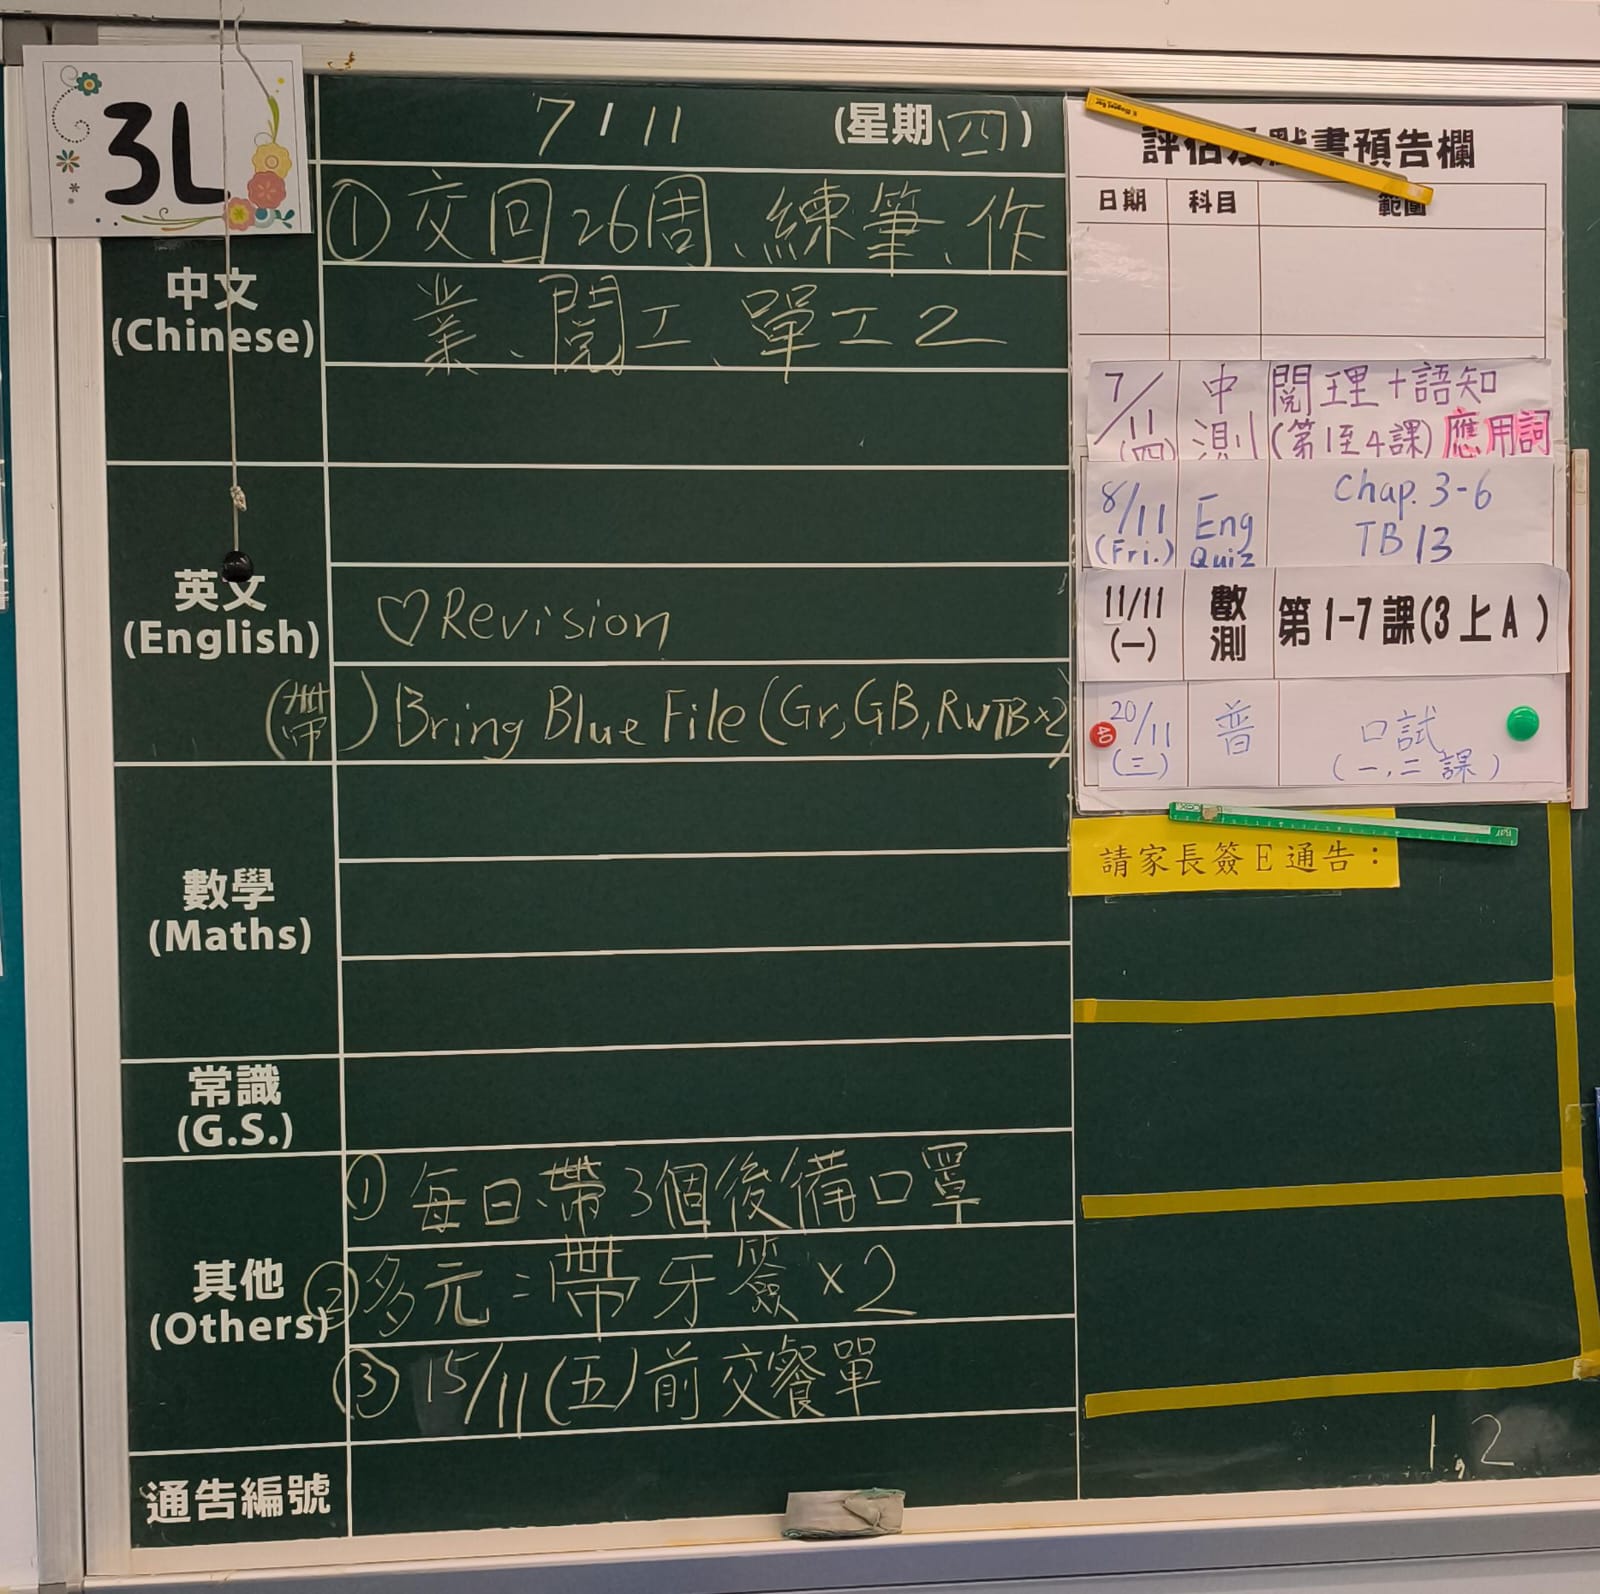 3L
7/11 (星期四)
中文
(Chinese)
①交回26周、練筆、作
業、閱工、單工2
英文
(English)
♡Revision
(帶) Bring Blue File (Gr, GB, RWTB×2)
數學
(Maths)
常識
(G.S.)
其他
(Others)
①每日帶3個後備口罩
②多元:帶牙簽×2
③15/11(五)前交餐單
通告編號
評估及默書預告欄
日期 科目 範圍
7/11 (四) 中測 閱理+語知
(第1至4課) 應用詞
8/11 (Fri.) Eng Quiz Chap. 3-6
TB 13
11/11 (一) 數測 第1-7課(3上A)
20/11 (三) 普 口試
(一,二課)
請家長簽E通告：
1,2